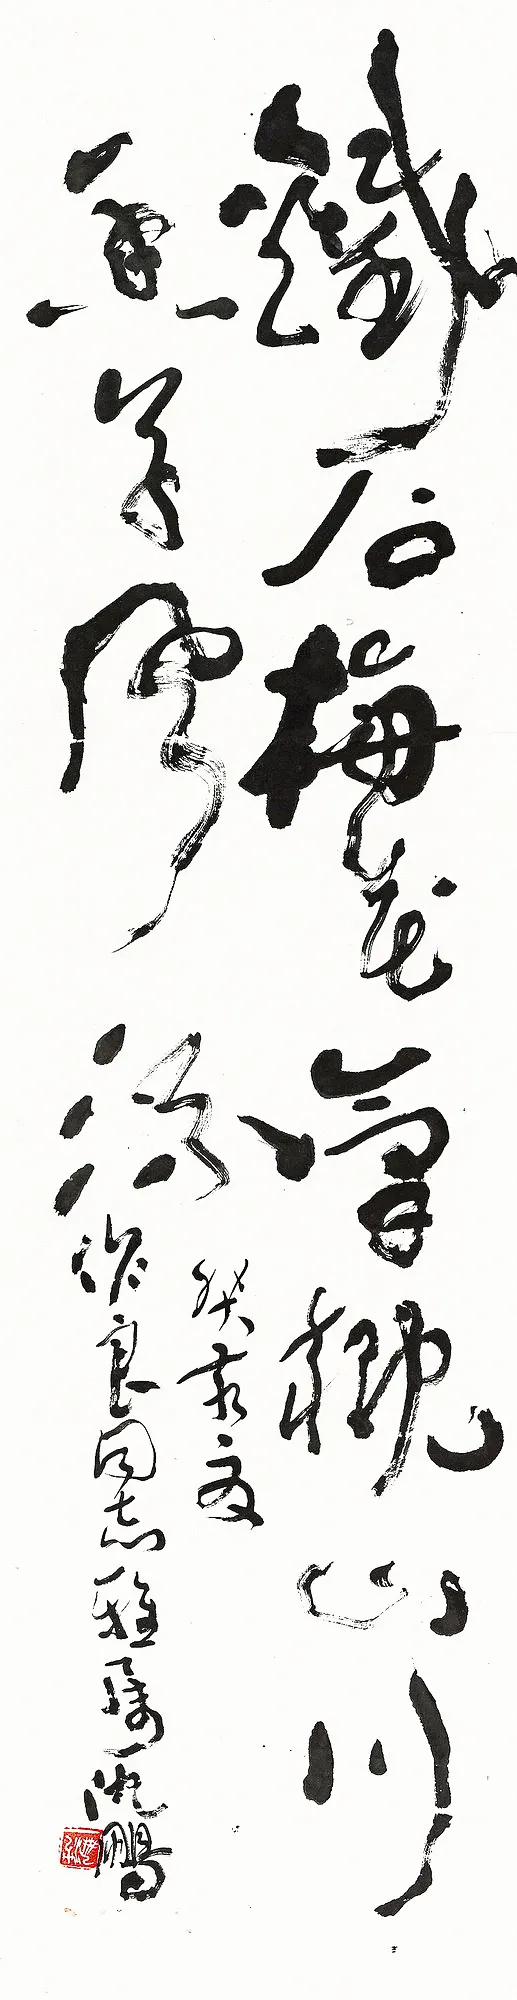 鐵石梅花氣概山川
香草風流
癸亥夏
作良同志雅屬沈鵬